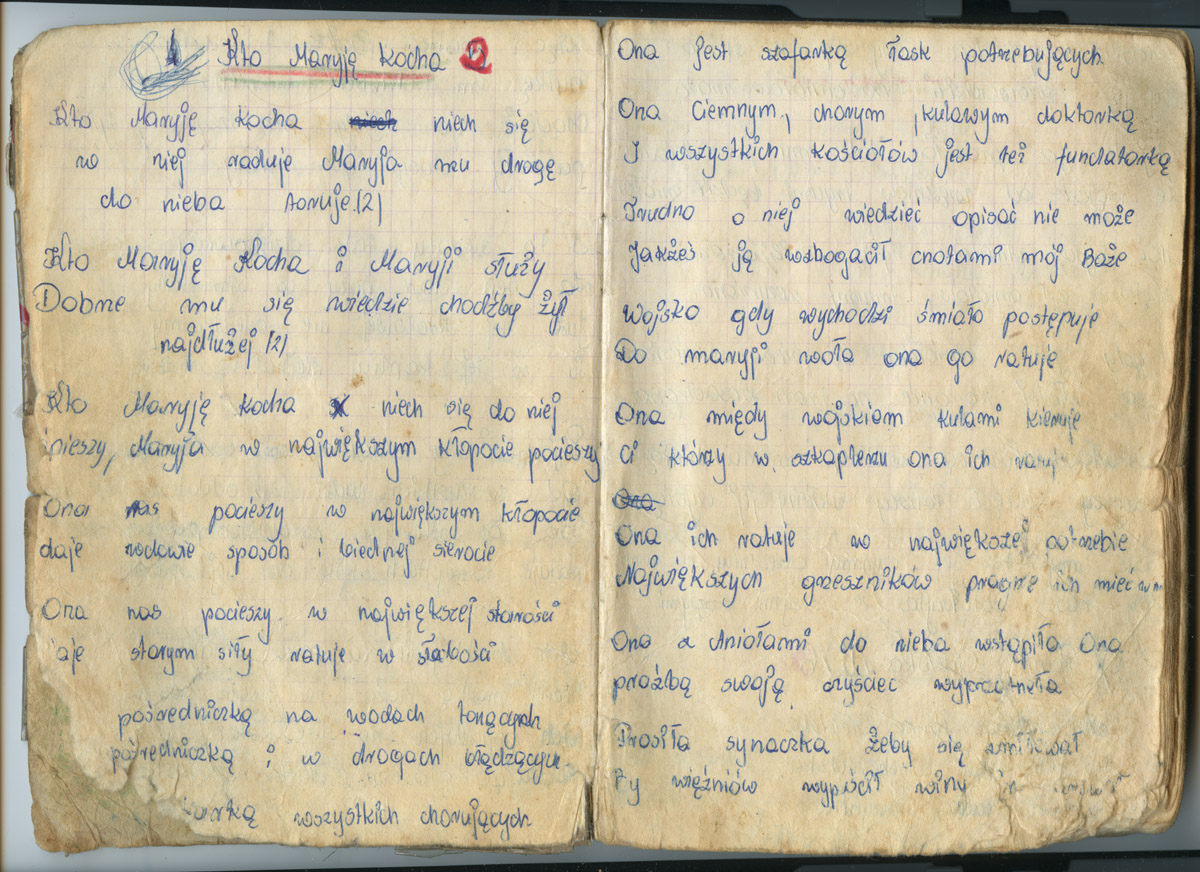 1 Kto Maryję kocha 2
Kto Maryję kocha niech niech się
w niej raduje Maryja mu drogę
do nieba toruje.(2)
Kto Maryję Kocha i Maryji służy
Dobrze mu się wiedzie chodźby żył
najdłużej (2)
Kto Maryję kocha niech się do niej
śpieszy, Maryja w największym kłopocie pocieszy
Ona nas pocieszy w największym kłopocie
daje wdowie sposób i biednej sierocie
Ona nas pocieszy w największej starości
daje starym siły ratuje w słabości
pośredniczką na wodach tonących
pośredniczką i w drogach błądzących
wszystkich chorujących
Ona jest szafarką łask potrzebujących.
Ona Ciemnym, chorym, kulawym doktorką
I wszystkich kościołów jest też fundatorką
Trudno o niej wiedzieć opisać nie może
Jakżeś ją wzbogacił cnotami mój Boże
Wojsko gdy wychodzi śmiało postępuje
Do maryji woła ona go ratuje
Ona między wojskiem kulami kieruje
Ci którzy w szkaplerzu ona ich
Ona
Ona ich ratuje w największej potrzebie
Największych grzeszników pragnie ich mieć w
Ona z Aniołami do nieba wstąpiła Ona
proźbą swoją czyściec wyprzątnęła
Prosiła synaczka żeby się zmiłował
By więźniów wypóścił winy